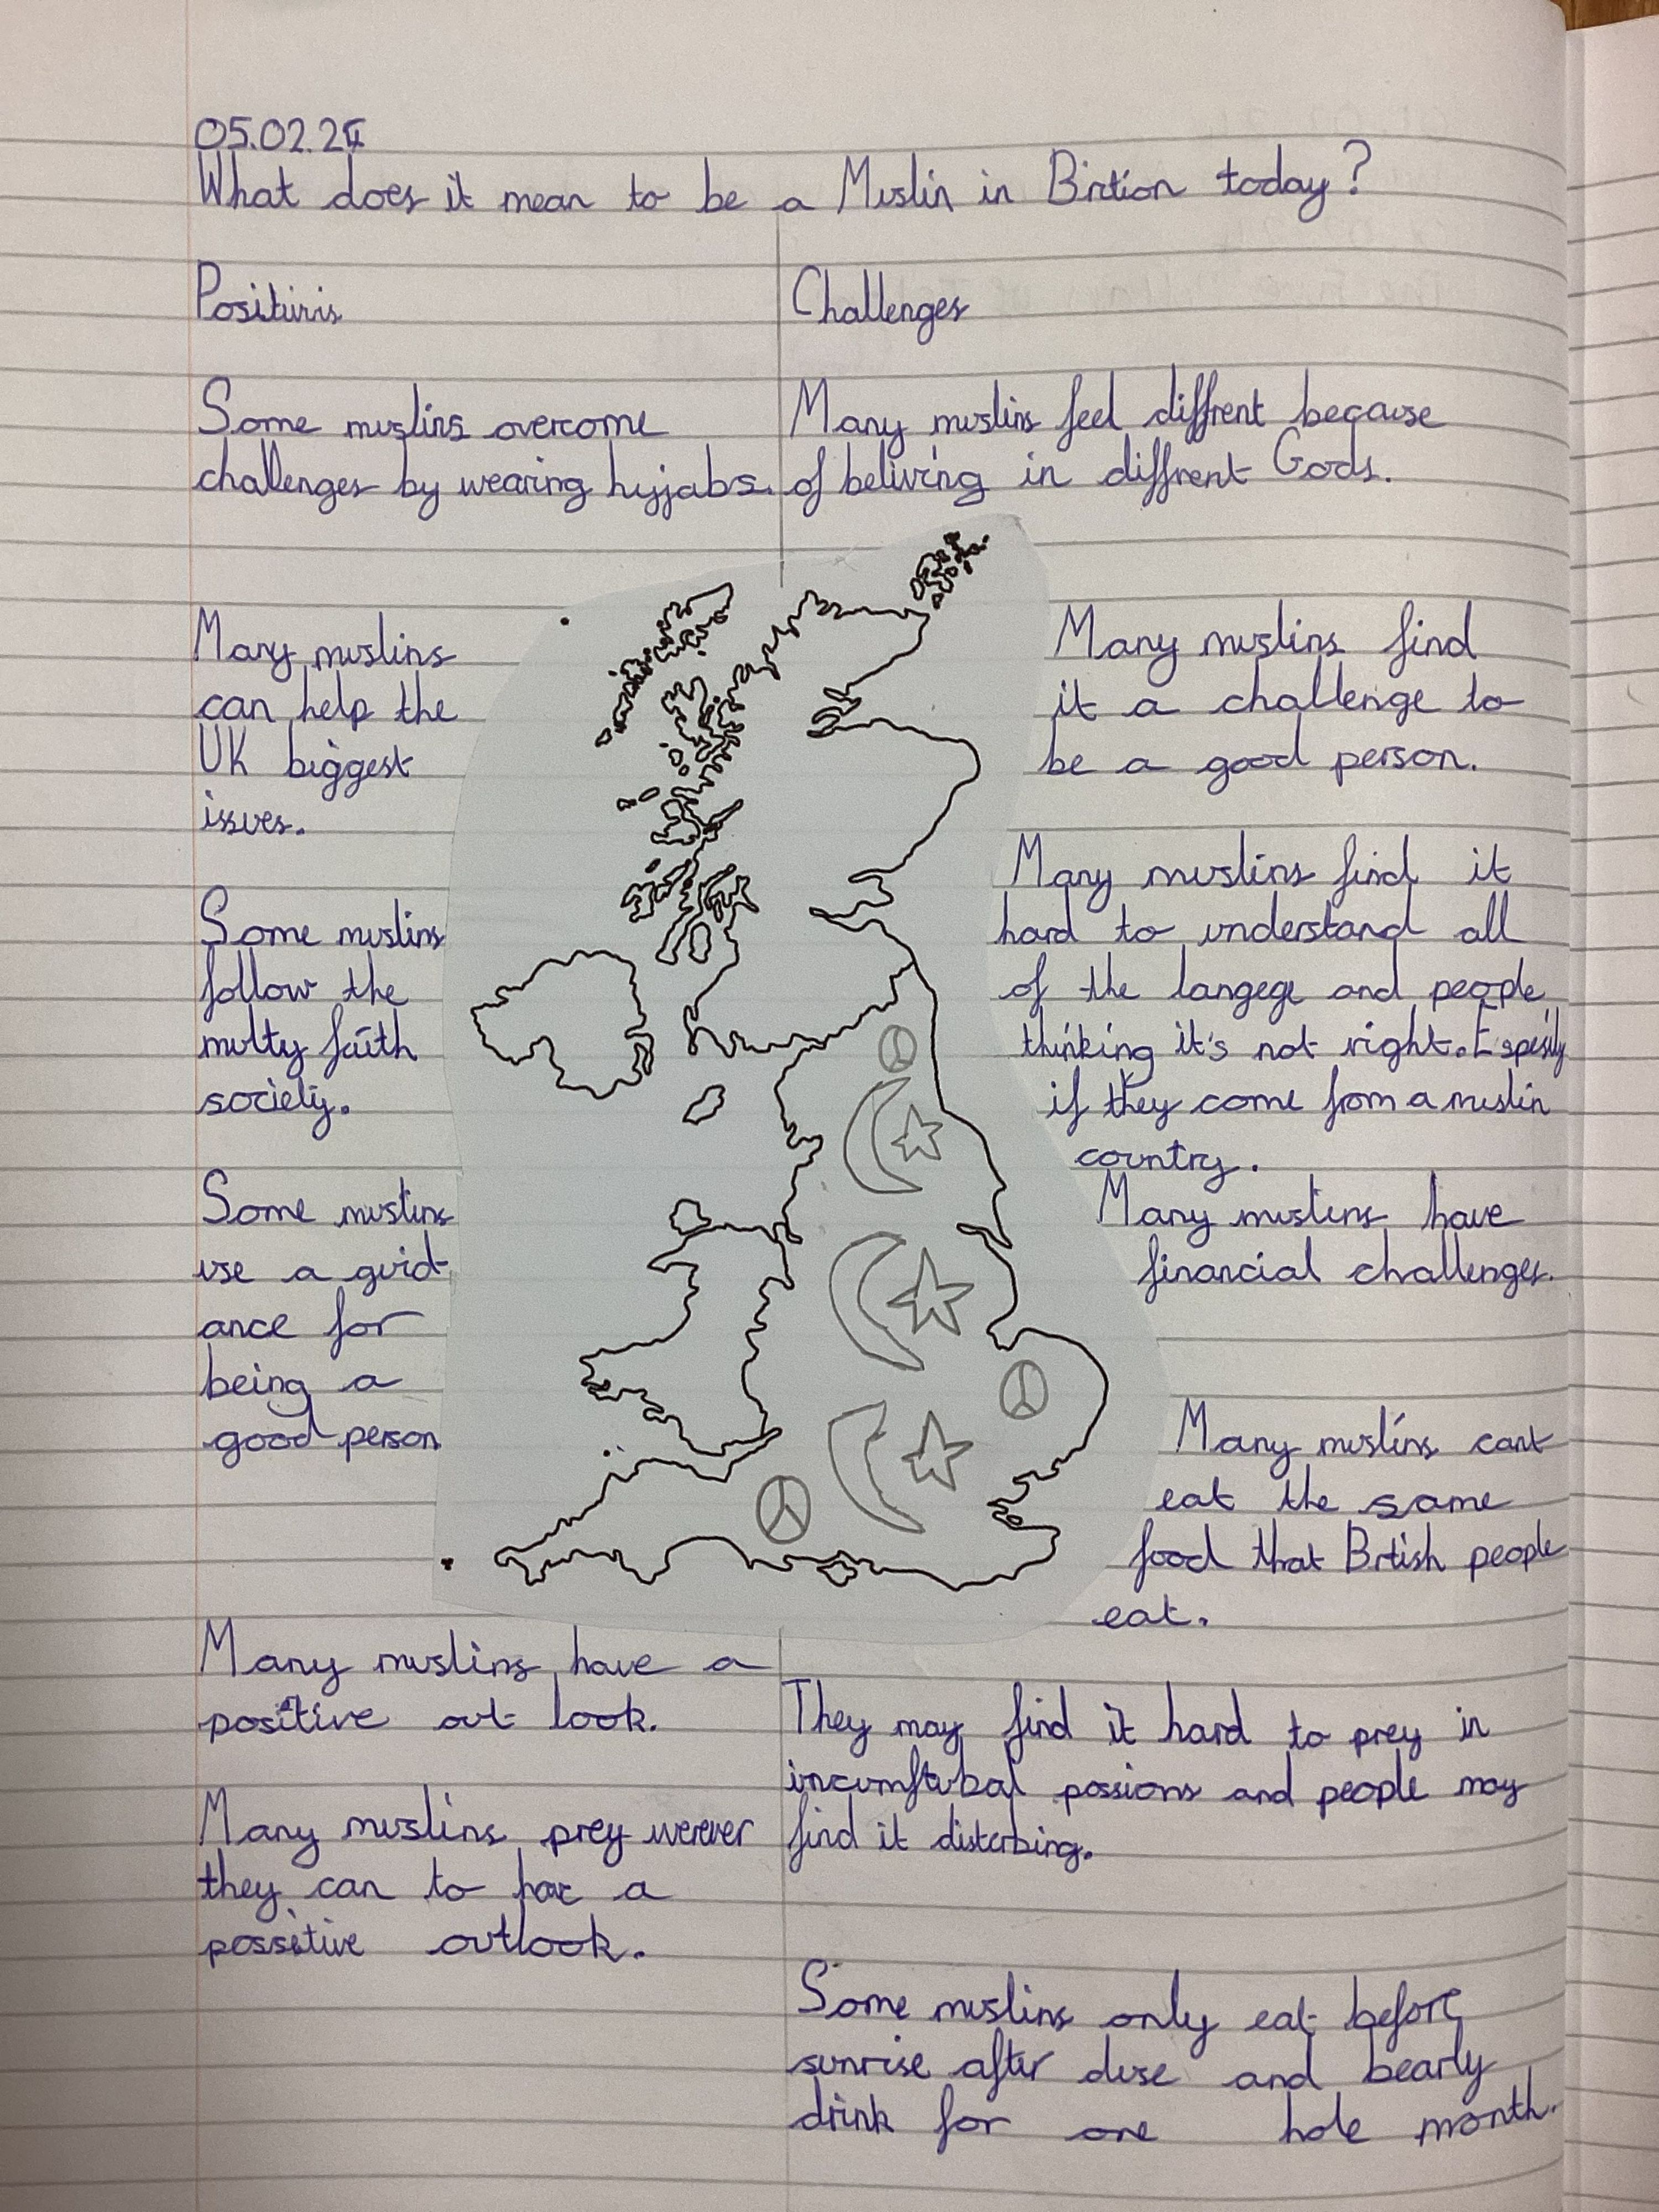 05.02.24
What does it mean to be a Muslin in Birtion today?
Positivis
Some muslins overcome
challenges by wearing hyjabs.
Many muslins
can help the
UK biggest
issues.
Some muslins
follow the
multy faith
society.
Some muslins
use a guid
ance for
being a
good person
Many muslins have a
positive out look.
Many muslins prey werever
they can to have a
possitive outlook.
Challenges
Many muslins feel diffrent because
of beliving in diffrent Gods.
Many muslins find
it a challenge to
be a good person.
Many muslins find it
hard to understand all
of the langege and people
thinking it's not right. Espesily
if they come from a muslin
country.
Many muslins have
financial challenges.
Many muslins cant
eat the same
food that Brtish people
eat.
They may find it hard to prey in
incumftubal possions and people may
find it disterbing.
Some muslins only eat before
sunrise after duse and bearly
drink for one hole month.